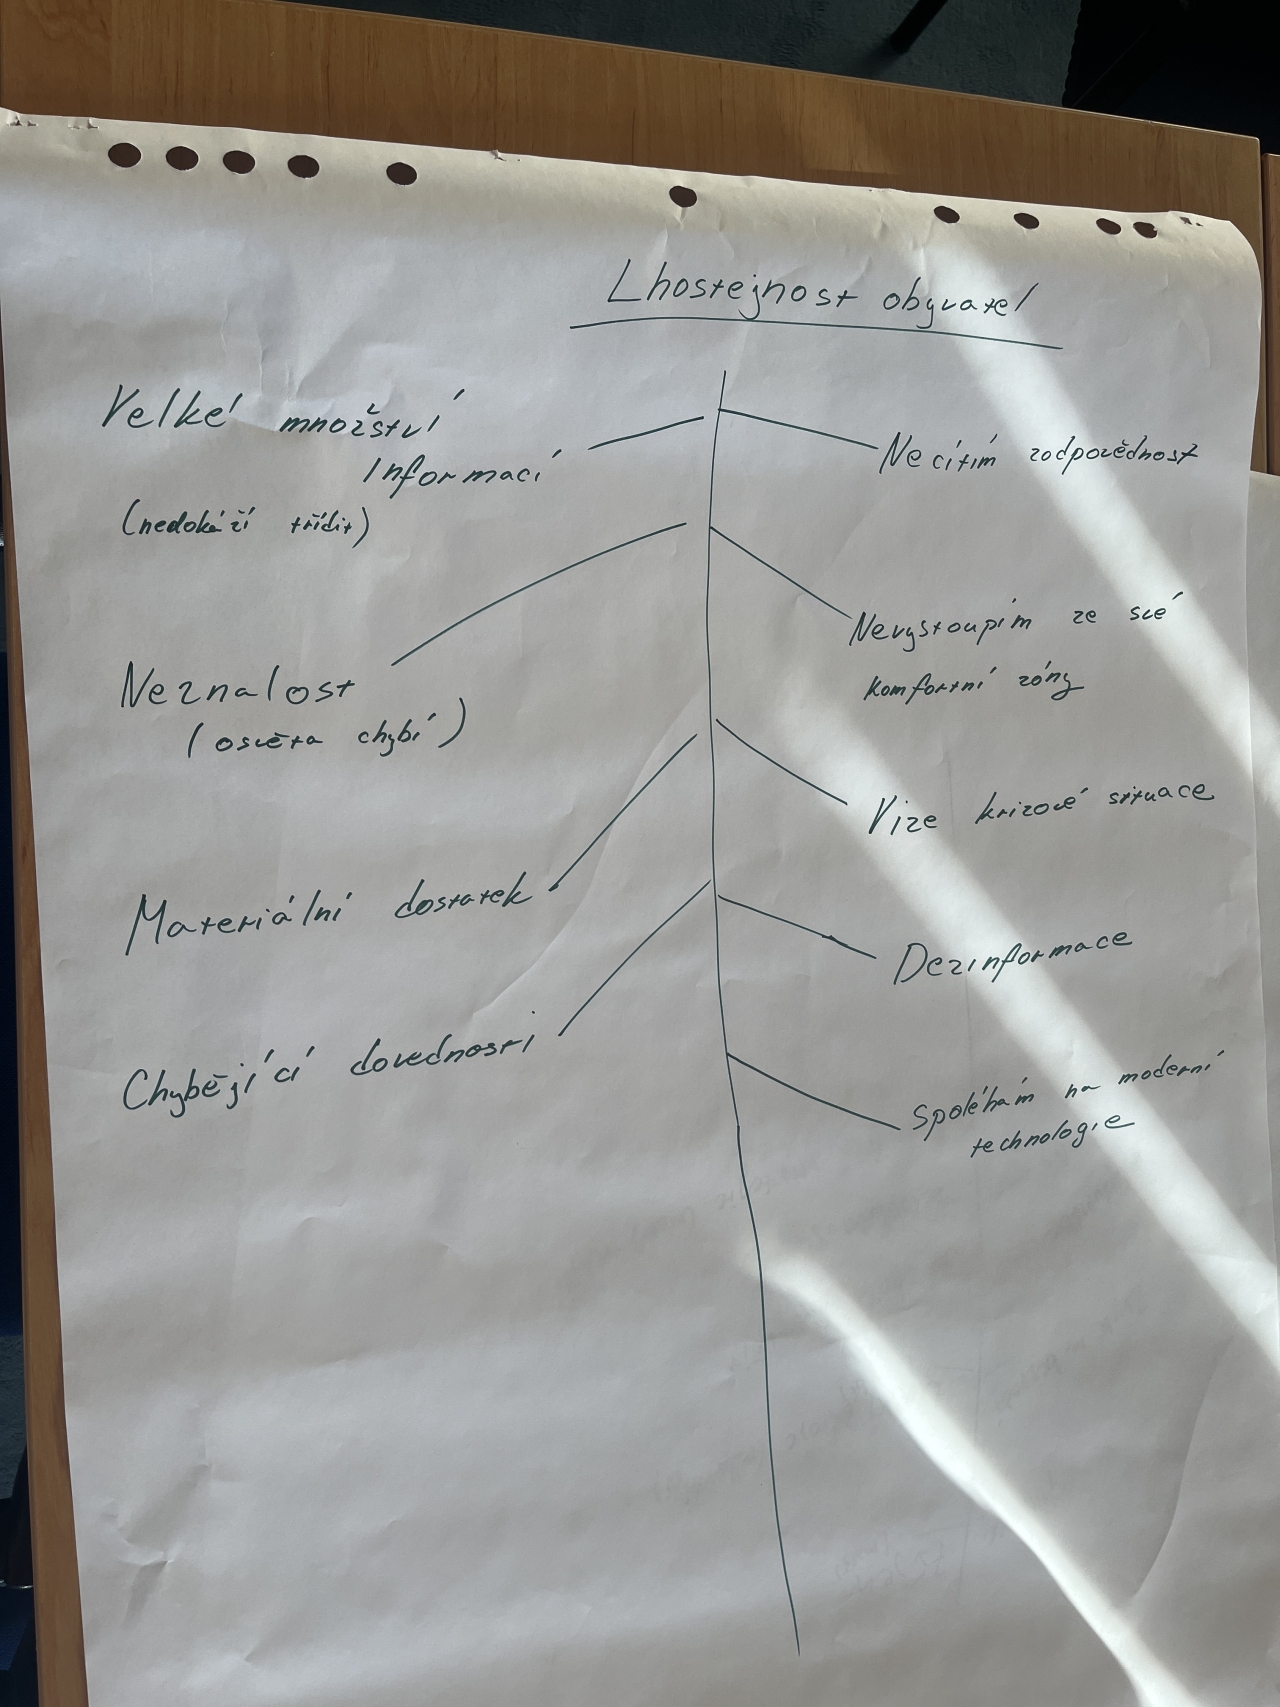 Lhostejnost obyvatel
Velké množství
Informací
(nedokáží třídit)
Neznalost
(osvěta chybí)
Materiální dostatek
Chybějící dovednosti
Necítím zodpovědnost
Nevystoupím ze své
komfortní zóny
Vize krizové situace
Dezinformace
Spoléhám na moderní
technologie